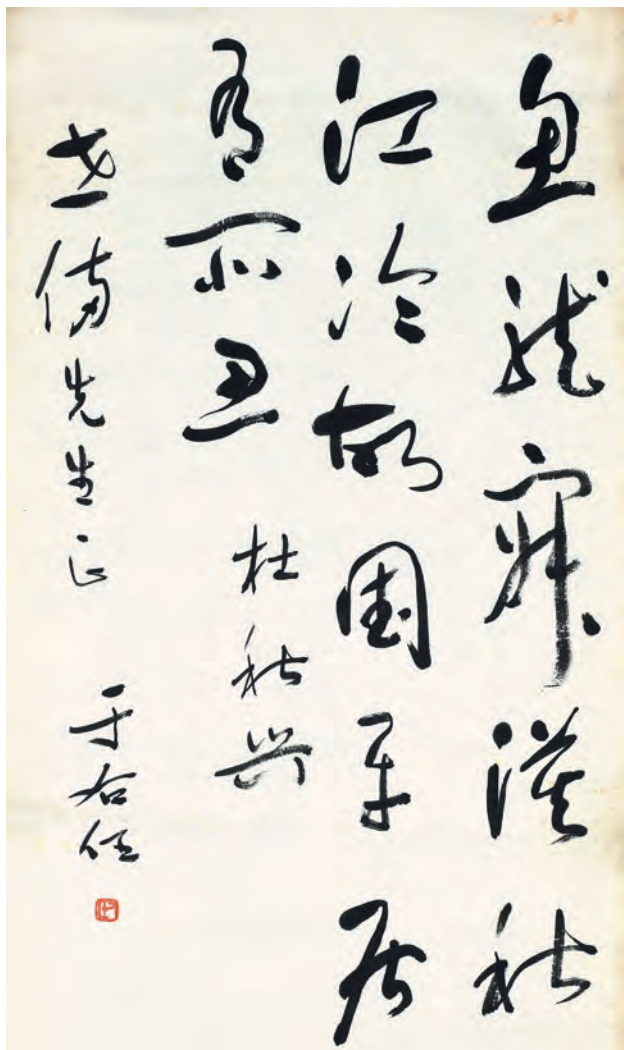 魚龍寂漠秋
江冷故國平居
有所思
杜秋興
先生正
于右任